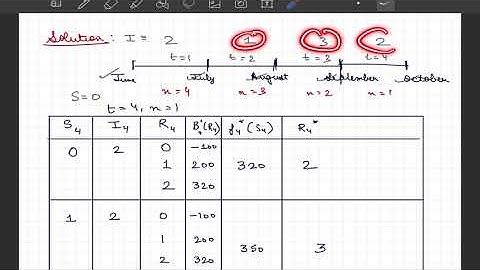 Solution: I = 2 1 3 2
t=1 t=2 t=3 t=4
June July August September October
S=0 n=4 n=3 n=2 n=1
t=4, n=1
S₄ I₄ R₄ f₄*(S₄) R₄*
0 2 0 -100
1 200 320 2
2 320
1 2 0 -100
1 200
350 3
2 320